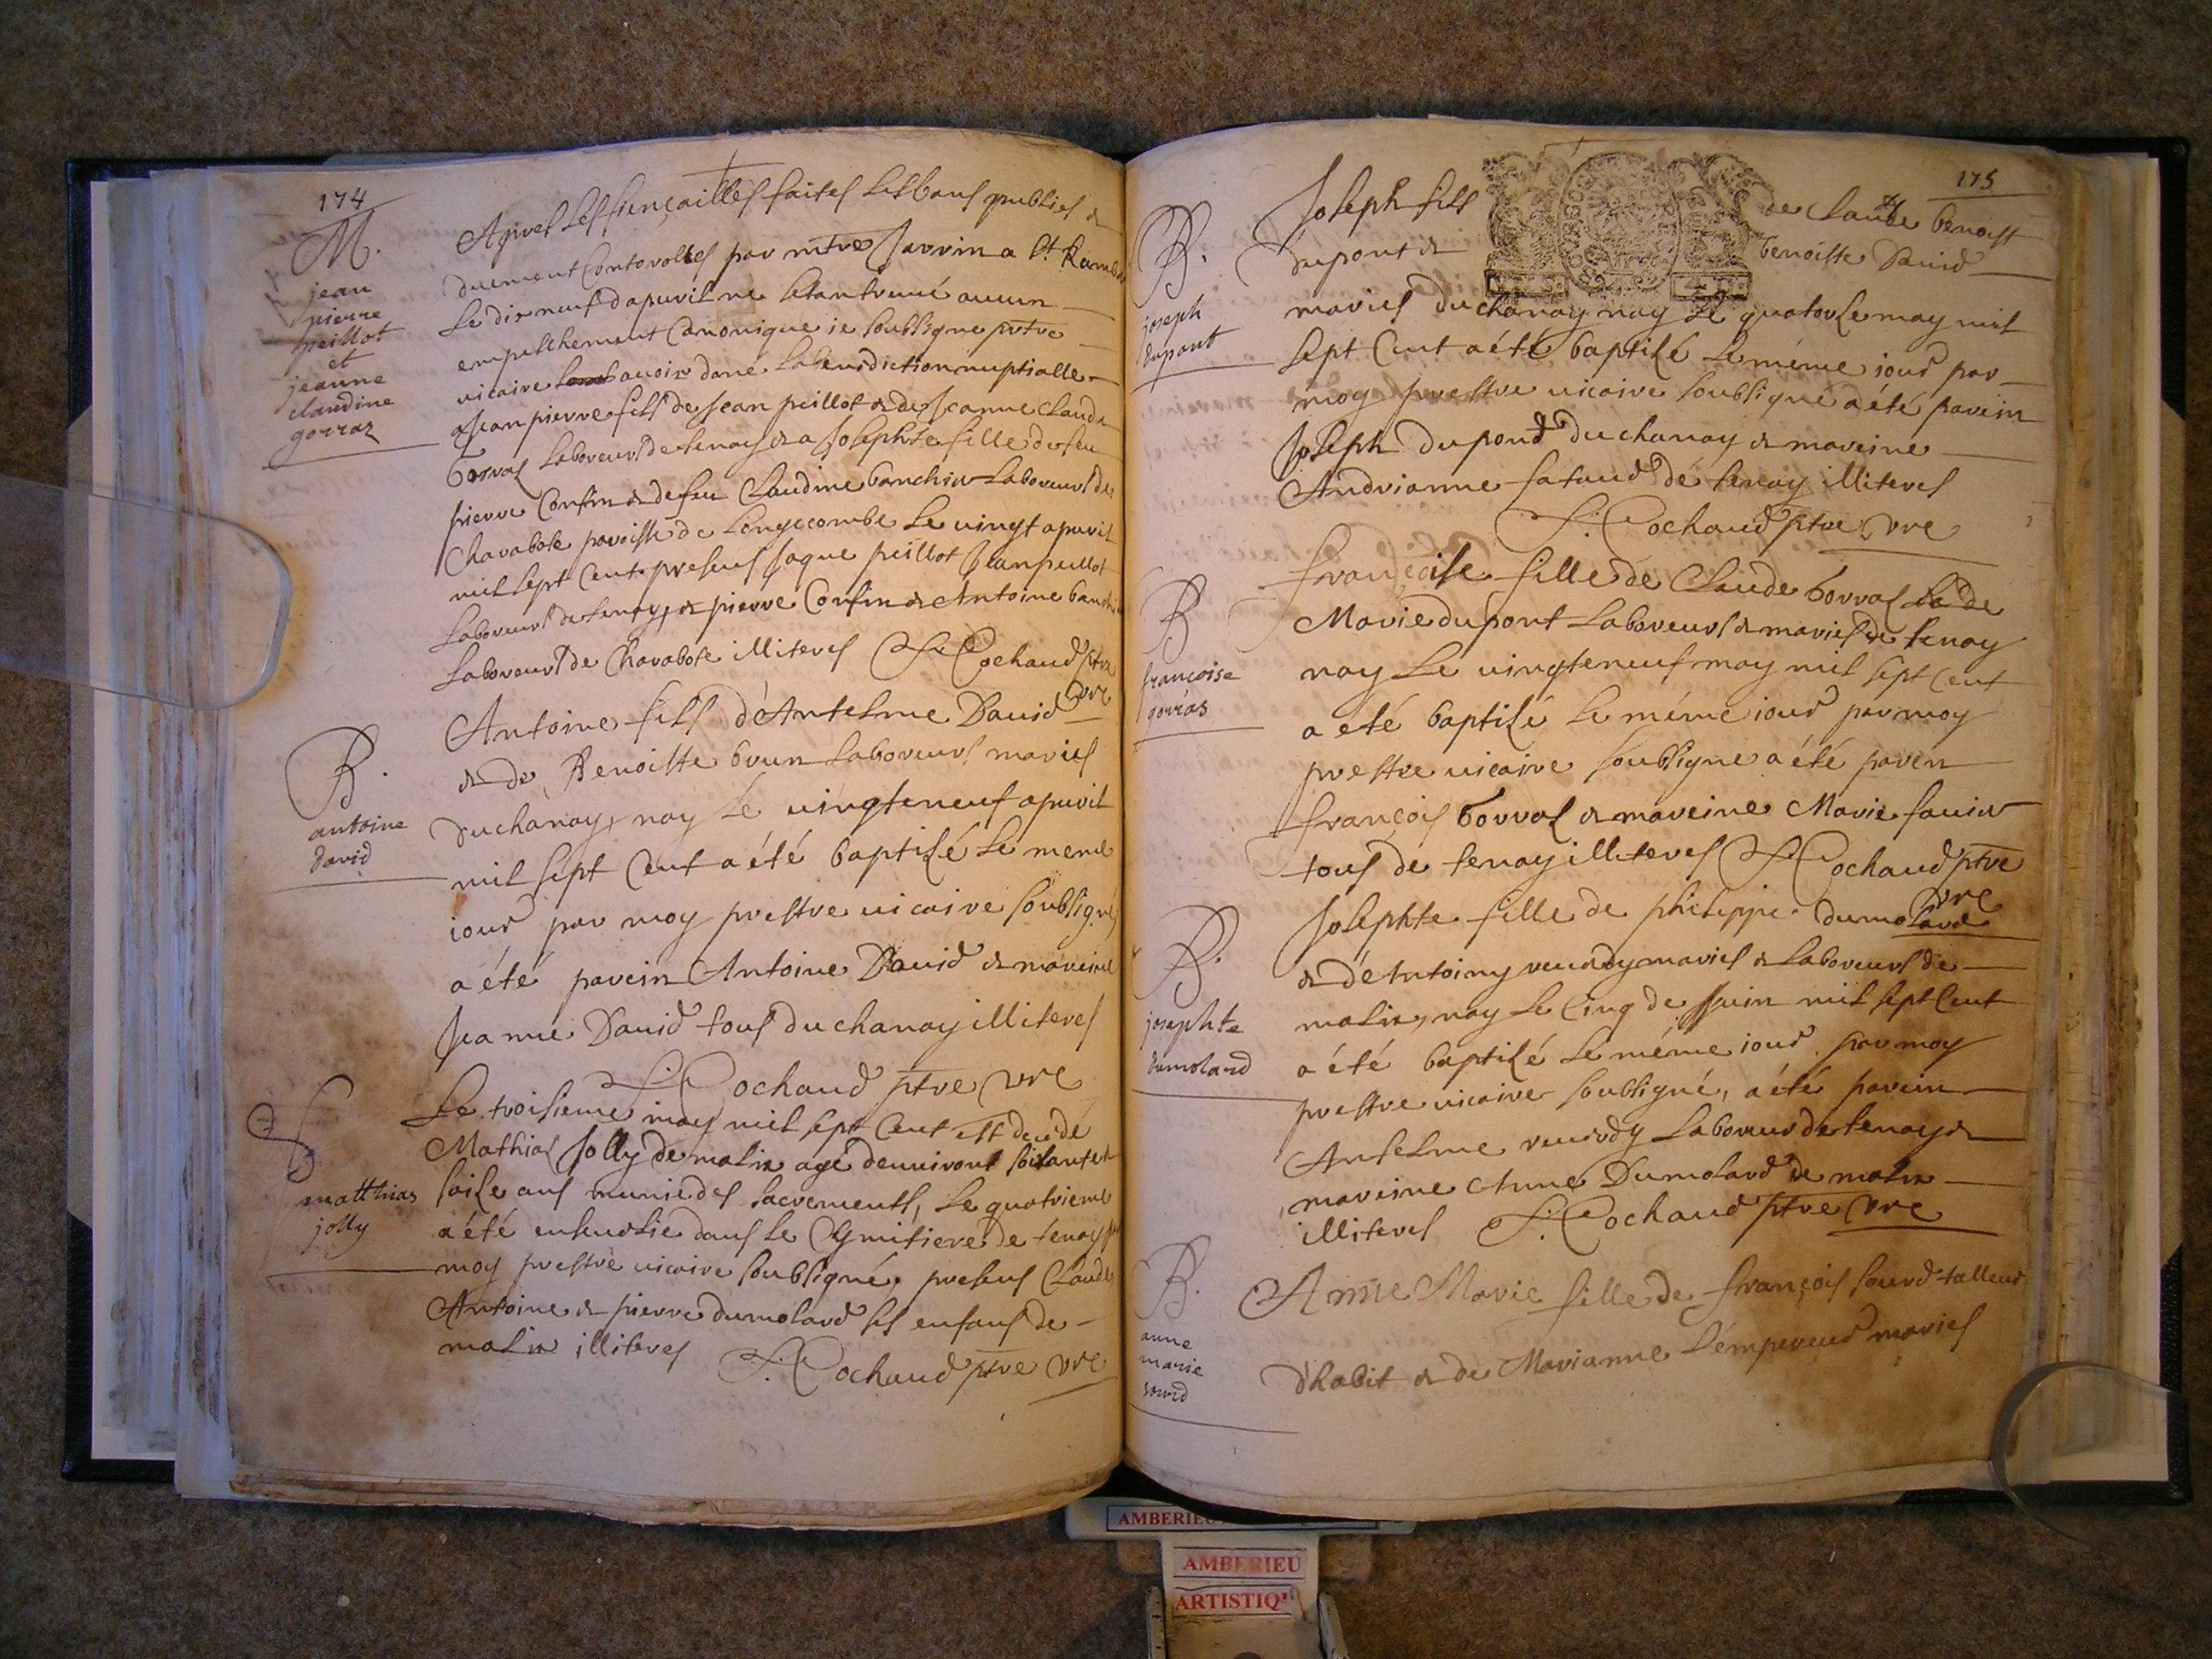 174
M.
jean
pierre
peillot
et
jeanne
claudine
gorraz
Apres les fiençailles faites les bans publies &
duement Controlles par mtre Jarrin a St. Ramb
Le dixneuf dapuril ne setant treuué aucun
empeschement Canonique ie soubsigne prtre
vicaire auoir doné la benediction nuptialle
a Jean pierre fils de Jean peillot & de Jeanne Clauda
Gorras Laboreurs de tenay & a Josephte fille de feu
pierre Confin & de feu Claudine banchin Laboreurs de
Charabote paroisse de Longecombe Le vingt apuril
mil sept Cent presens Jaque peillot Jean peillot
Laboreurs de tenay, & pierre Confin & Antoine banchi
Laboreurs de Charabote illiteres F. Cochaud ptre
vre
B.
antoine
david
Antoine fils d'Antelme Dauid
& de Benoiste brun Laboreurs maries
du chanay, nay Le vingteneuf apuril
mil sept Cent a été baptisé Le meme
iour par moy prestre uicaire soubsigné,
a été parein Antoine Dauid & mareine
Jeanne Dauid tous du chanay illiteres
F. Cochaud ptre vre
S
matthias
jolly
Le troisieme may mil sept Cent est decédé
Mathias Jolly de malix agé denuiront soixante &
saise ans munie des sacrements, Le quatrieme
a été enseuelie dans Le Cymitiere de tenay p
moy prestre uicaire soubsigné, presens Claude
Antoine & pierre dumolard ses enfans de
malix illiteres F. Cochaud ptre vre
175
B.
joseph
dupont
Joseph fils de Claude benoist
dupont & benoiste Dauid
maries du chanay nay Le quatorse may mil
sept Cent a été baptisé Le méme iour par
moy prestre uicaire soubsigné a été parein
Joseph dupond du chanay & mareine
Andrianne fataud de tenay illiteres
F. Cochaud ptre vre
B
françoise
gorras
françoise fille de Claude Gorras & de
Marie dupont Laboreurs & maries de tenay
nay Le uingteneuf may mil sept Cent
a eté baptisé Le méme iour par moy
prestre uicaire soubsigne a été paren
françois Gorras & mareine Marie fauin
tous de tenay illiteres F. Cochaud ptre
vre
B.
josephte
dumolard
Josephte fille de philippe dumolard
& de Antoiny reuerdy maries & Laboreurs de
malix, nay Le Cinq de Juin mil sept Cent
a été baptisé Le méme iour par moy
prestre uicaire soubsigné, a été parein
Antelme reuerdy Laboreur de tenay &
mareine Anne Dumolard de malix
illiteres F. Cochaud ptre vre
B.
anne
marie
sourd
Anne Marie fille de françois sourd talleur
d'habit & de Marianne Lémpereur maries
AMBERIEU
AMBERIEU
ARTISTIQ